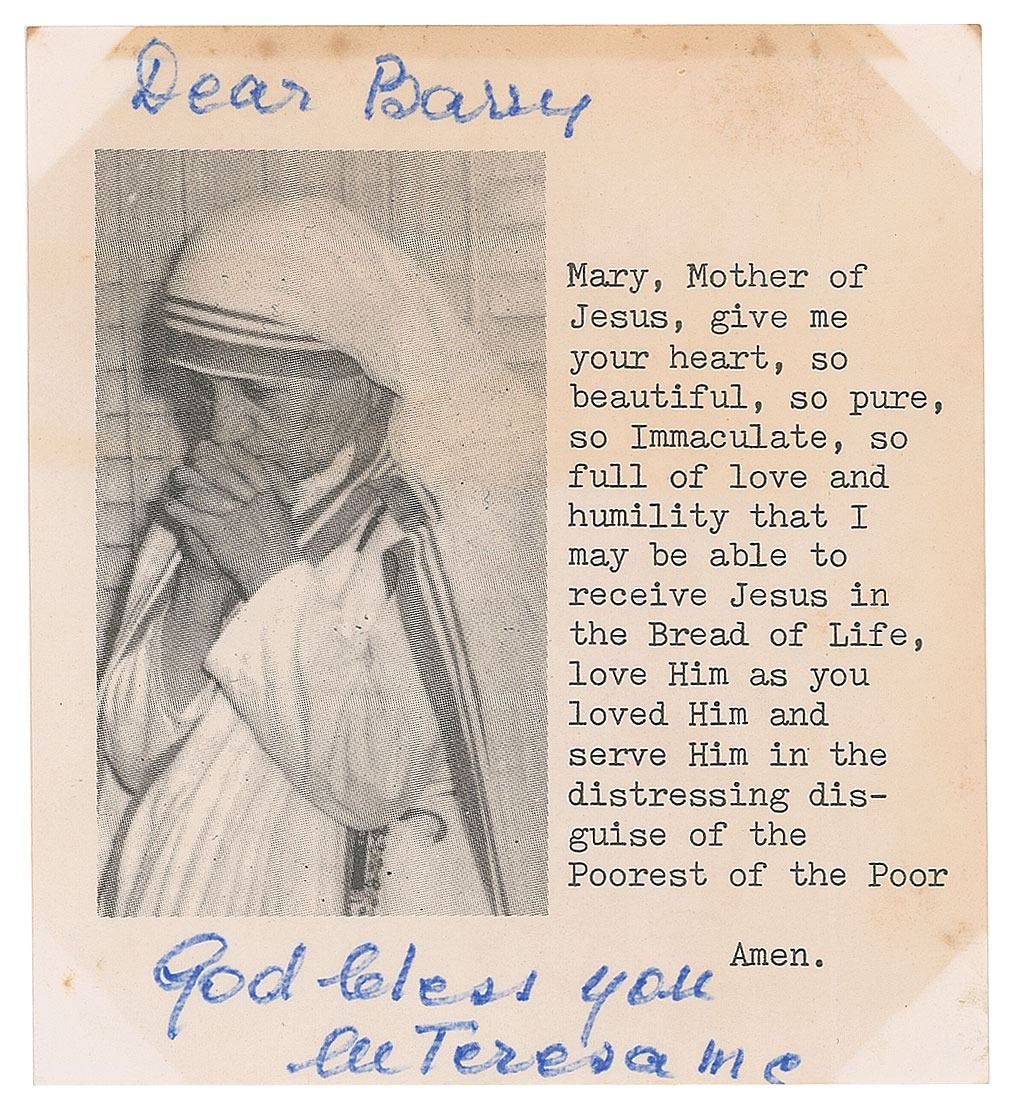 Dear Barry
Mary, Mother of
Jesus, give me
your heart, so
beautiful, so pure,
so Immaculate, so
full of love and
humility that I
may be able to
receive Jesus in
the Bread of Life,
love Him as you
loved Him and
serve Him in the
distressing dis-
guise of the
Poorest of the Poor
Amen.
God bless you
M Teresa mc